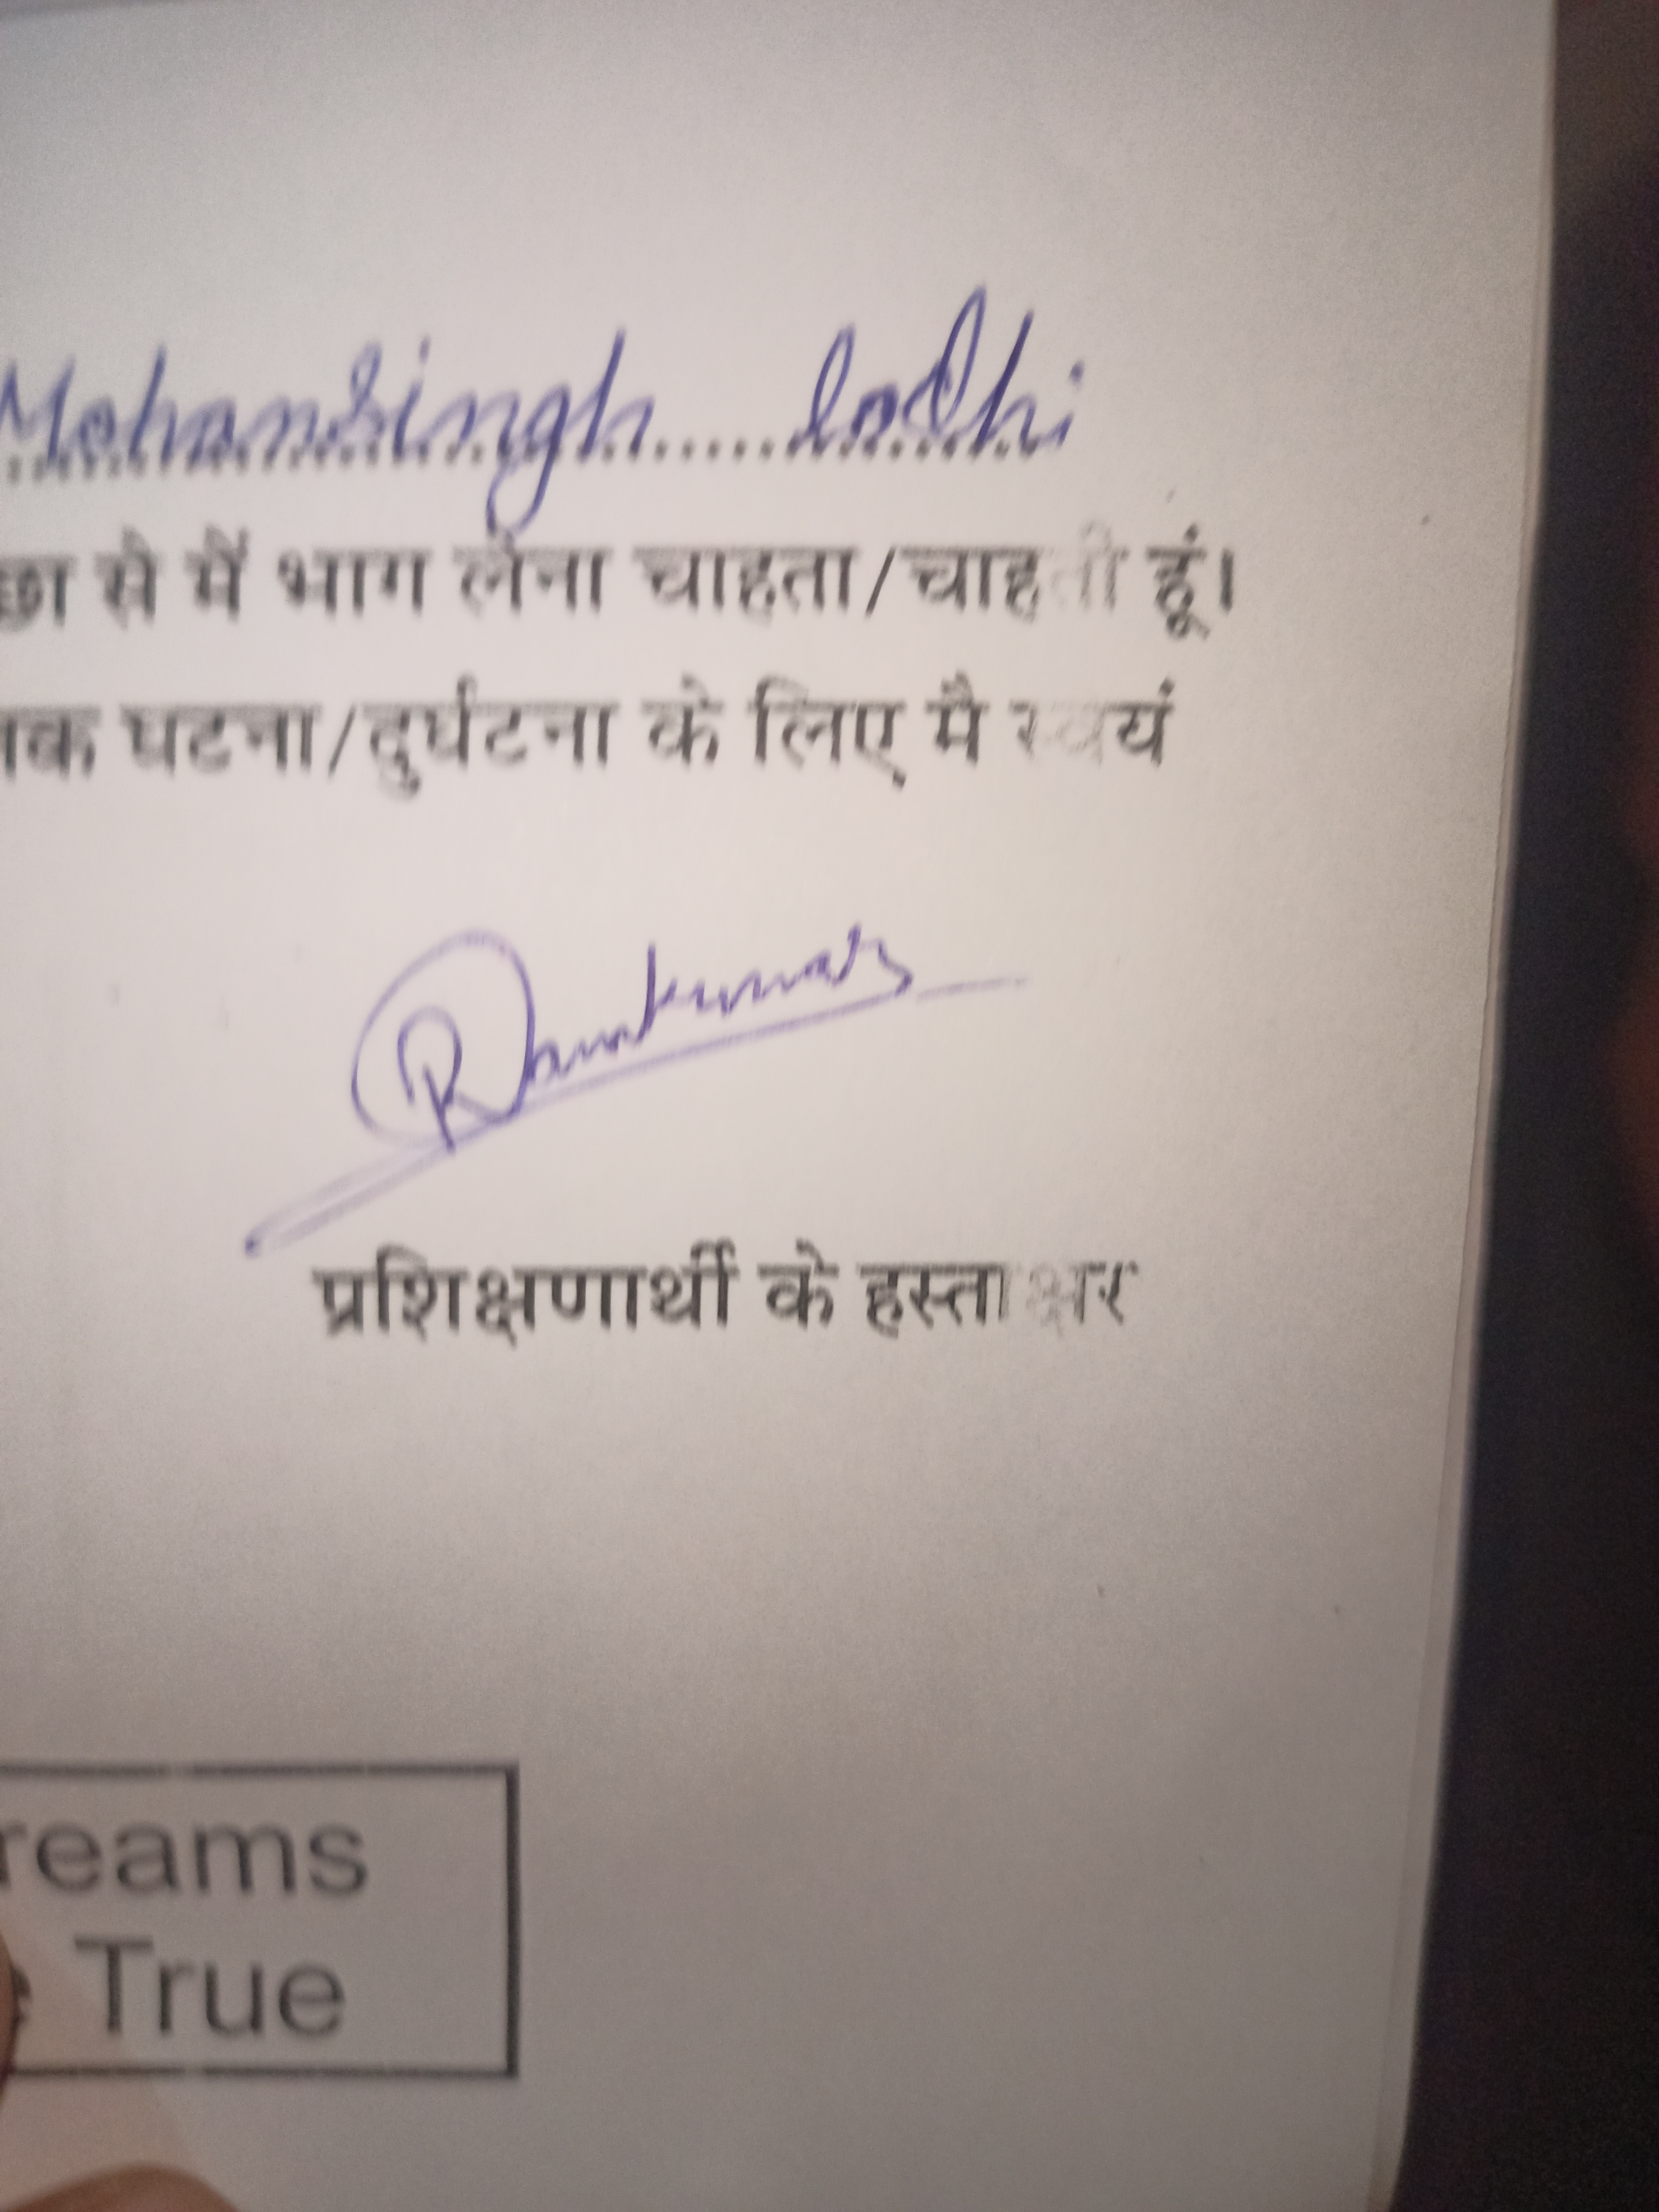 Mohansingh lodhi
से मैं भाग लेना चाहता/चाहती हूं।
घटना/दुर्घटना के लिए मै स्वयं
Ramkumar
प्रशिक्षणार्थी के हस्ताक्षर
reams
True